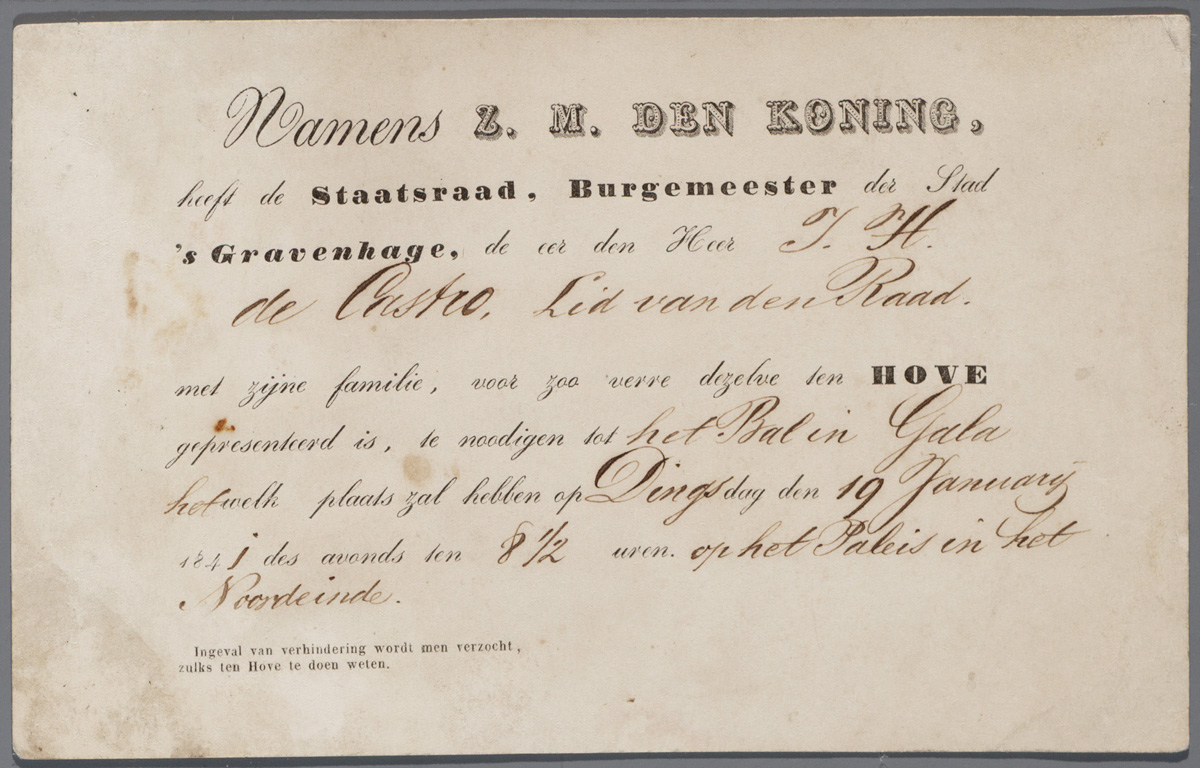 Namens Z. M. DEN KONING,
heeft de Staatsraad, Burgemeester der Stad
's Gravenhage, de eer den Heer J. H.
de Castro, Lid van den Raad.
met zijne familie, voor zoo verre dezelve ten HOVE
gepresenteerd is, te noodigen tot het Bal in Gala
hetwelk plaats zal hebben op Dingsdag den 19 January
1841 des avonds ten 8 1/2 uren. op het Paleis in het
Noordeinde.
Ingeval van verhindering wordt men verzocht,
zulks ten Hove te doen weten.